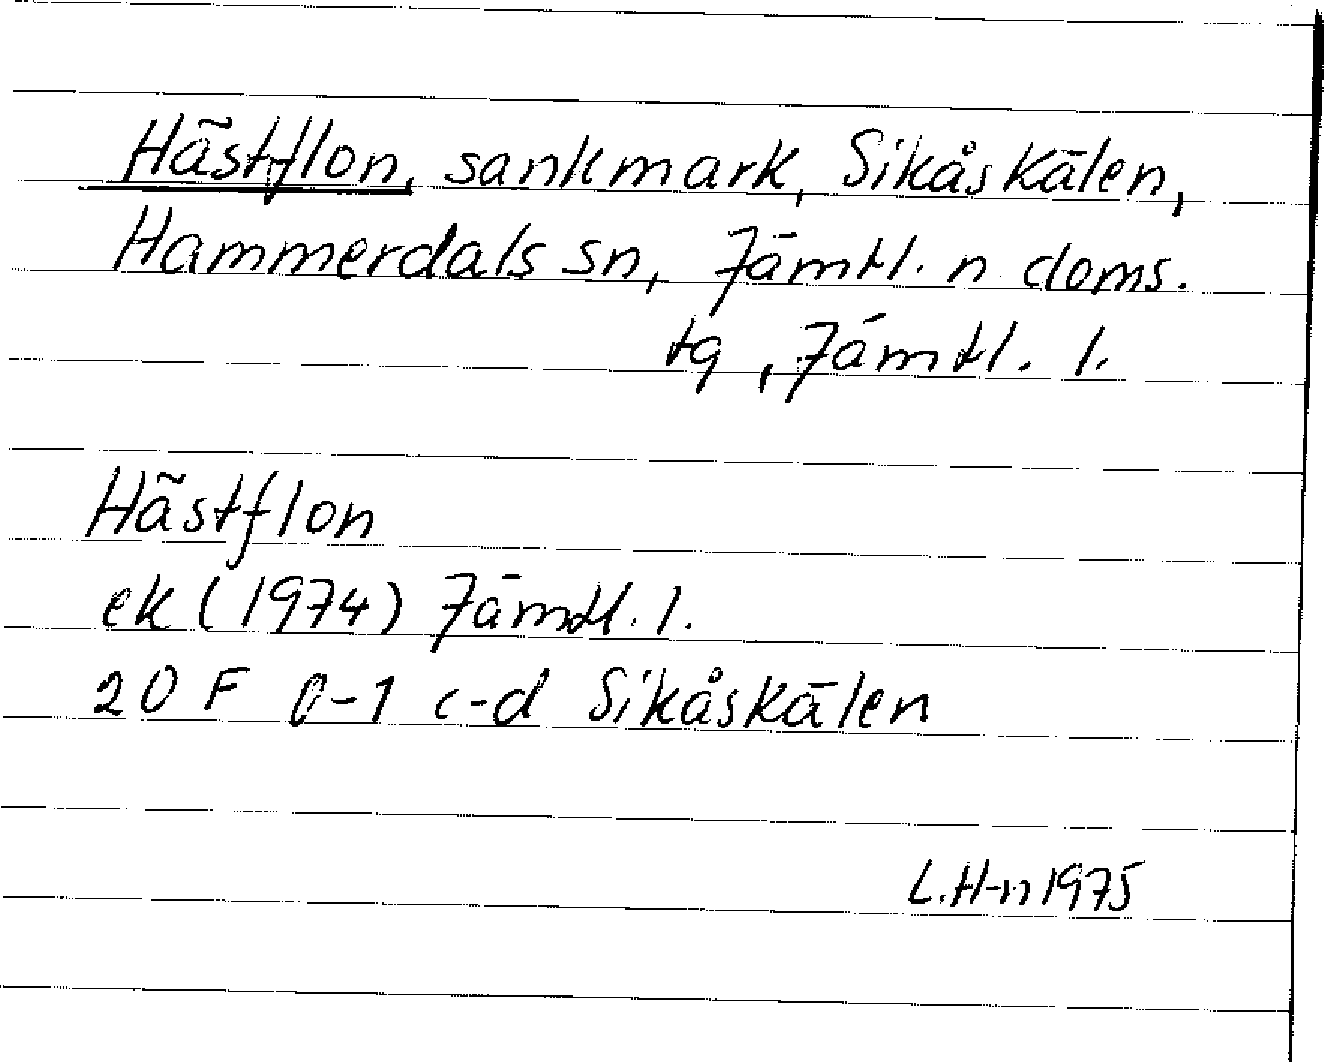 Hästflon, sankmark, Sikåskälen,
Hammerdals sn, Jämtl. n doms.
tg, Jämtl. l.
Hästflon
ek (1974) Jämtl. l.
20 F 0-1 c-d Sikåskälen
L.H-n 1975